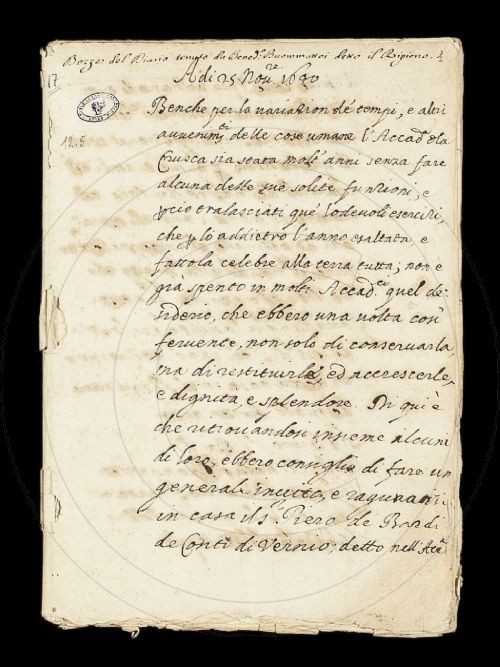 Bozze del Diario tempo da Bened.º Buommattei detto il Ripieno. 1
A di 25 Nov.re 1640
17
Benche per la variazion de' tempi, e altri
12.5
avvenim.ti delle cose umane l'Accad.a della
Crusca sia stata molt' anni senza fare
alcuna delle sue solite funzioni, e
p ciò tralasciati que' lodevoli esercizi,
che p lo addietro l'anno esaltata, e
fattola celebre alla terra tutta; non è
già spento in molti Accad.ci quel de-
siderio, che ebbero una volta così
fervente, non solo di conservarla,
ma di restituirle, ed accrescerle,
e dignità, e splendore. Di qui è
che ritrovandosi insieme alcuni
di loro, ebbero consiglio di fare un
general' invito, e ragunarsi
in casa il S.r Piero de Bardi
de Conti di Vernio; detto nell'Acc.a